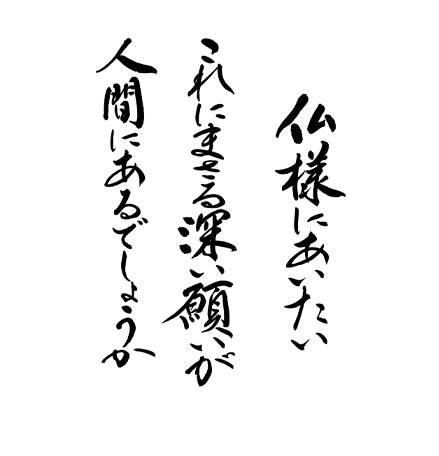 仏様にあいたい
これにまさる深い願いが
人間にあるでしょうか